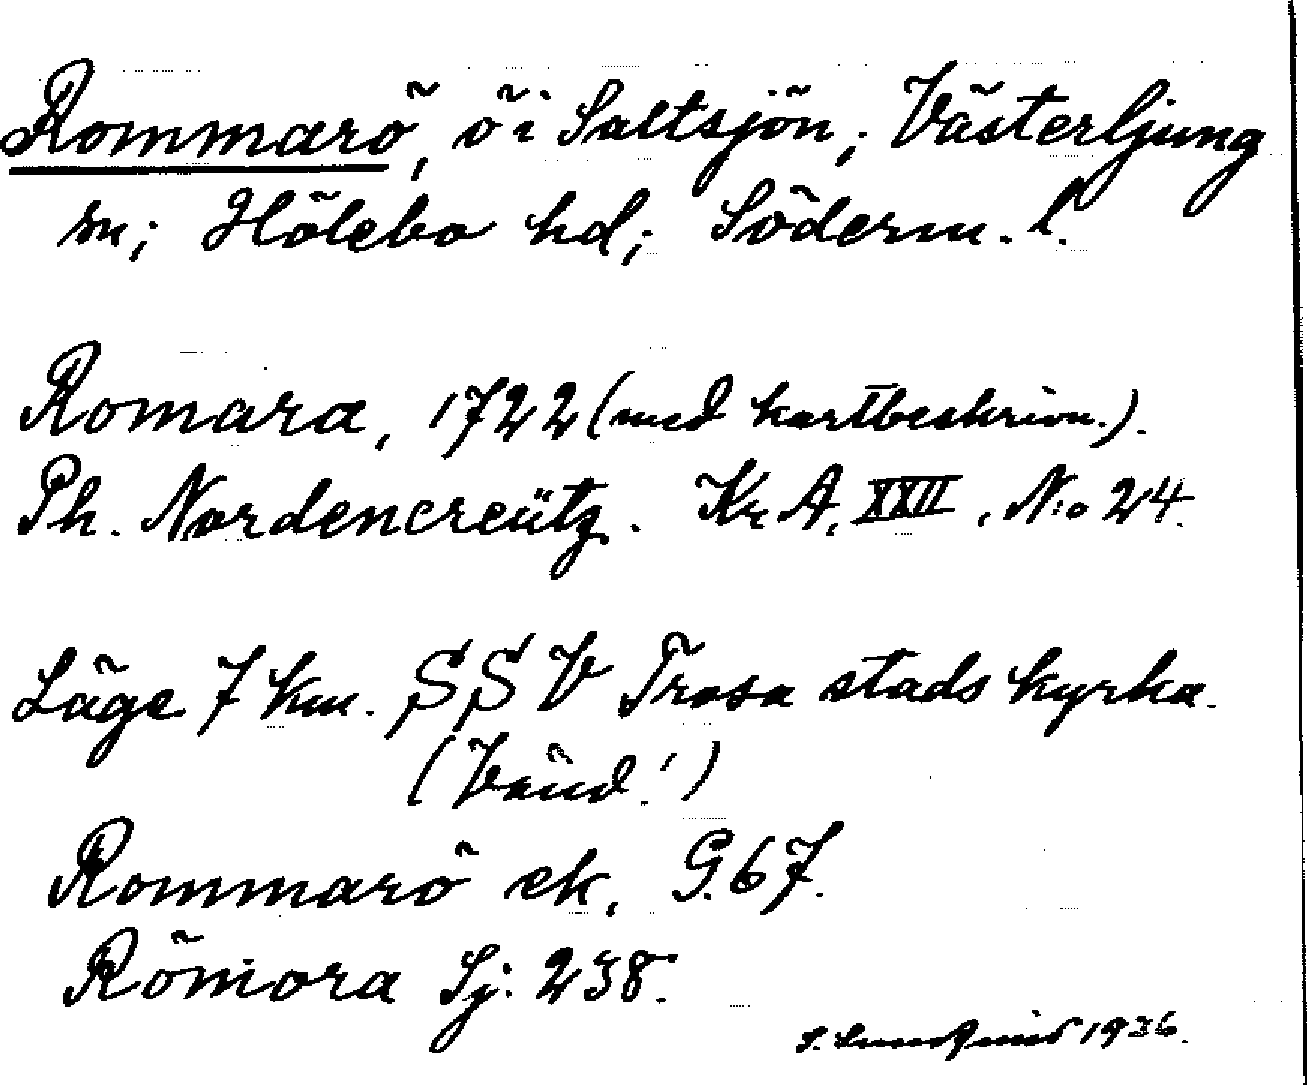 Rommarö, ö i Saltsjön; Västerljung
sn; Hölebo hd; Söderm. l.
Romara, 1722 (med kartbeskrivn.).
Ph. Nordencreütz. Kr. A. XXII, No 24.
Läge 7 km. SSV Trosa stads kyrka.
(Vänd!)
Rommarö ek, G. 67.
Römora Sj. 238.
S. 1936.